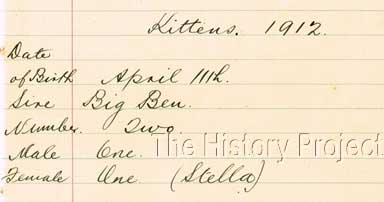 Kittens. 1912.
Date
of Birth April 11th.
Sire Big Ben.
Number. Two.
Male One.
The History Project
Female One (Stella)